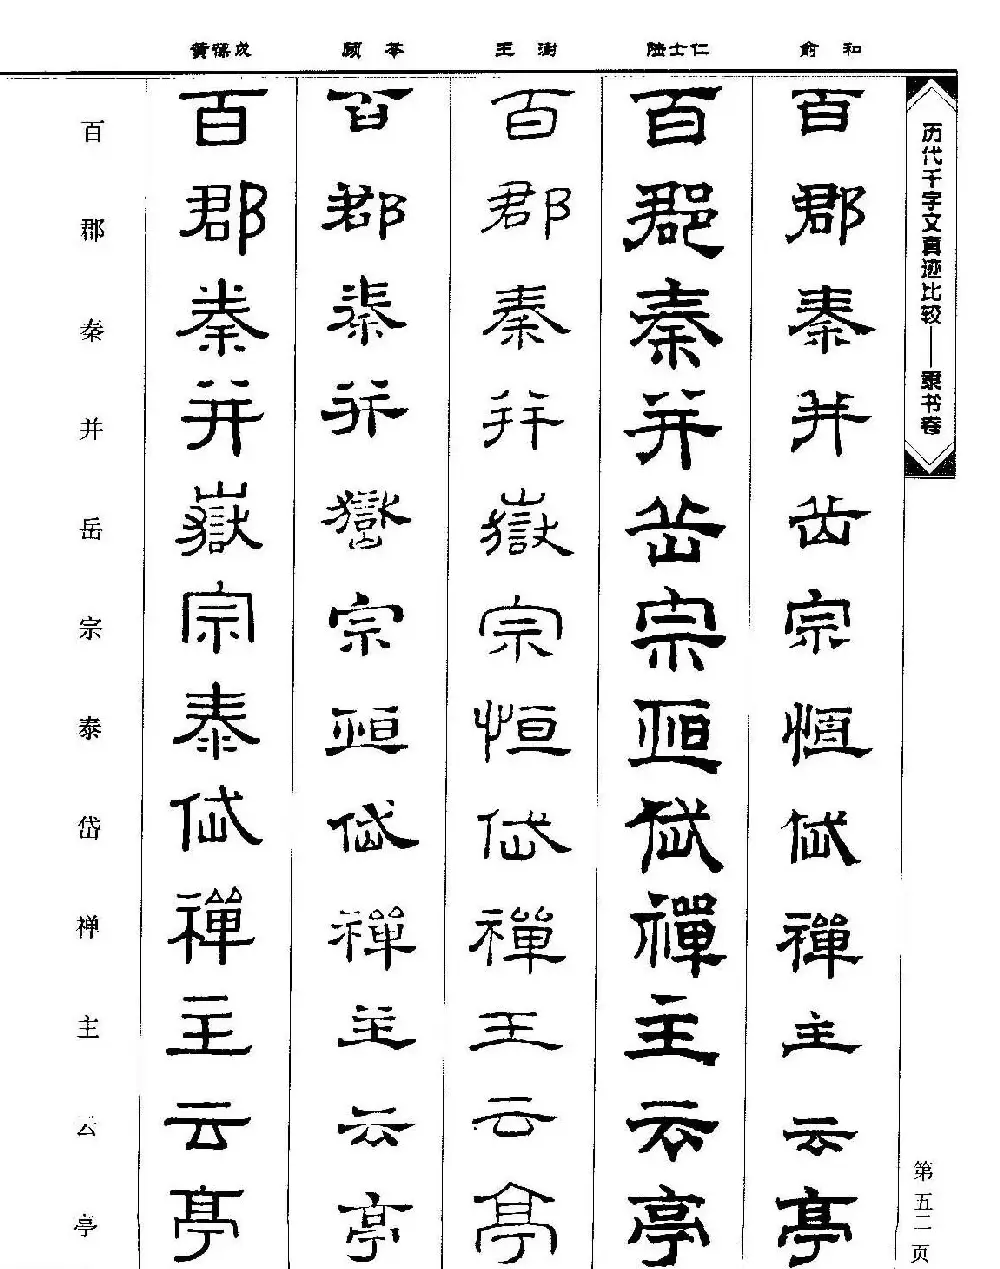 历代千字文真迹比较——隶书卷
第五二页
俞和
百郡秦并岳宗恒岱禪主云亭
陸士仁
百郡秦并岳宗恒岱禪主云亭
王澍
百郡秦并嶽宗恒岱禪主云亭
顾苓
百郡秦并嶽宗恒岱禪主云亭
黄葆戉
百郡秦并嶽宗泰岱禪主云亭
百郡秦并岳宗泰岱禅主云亭